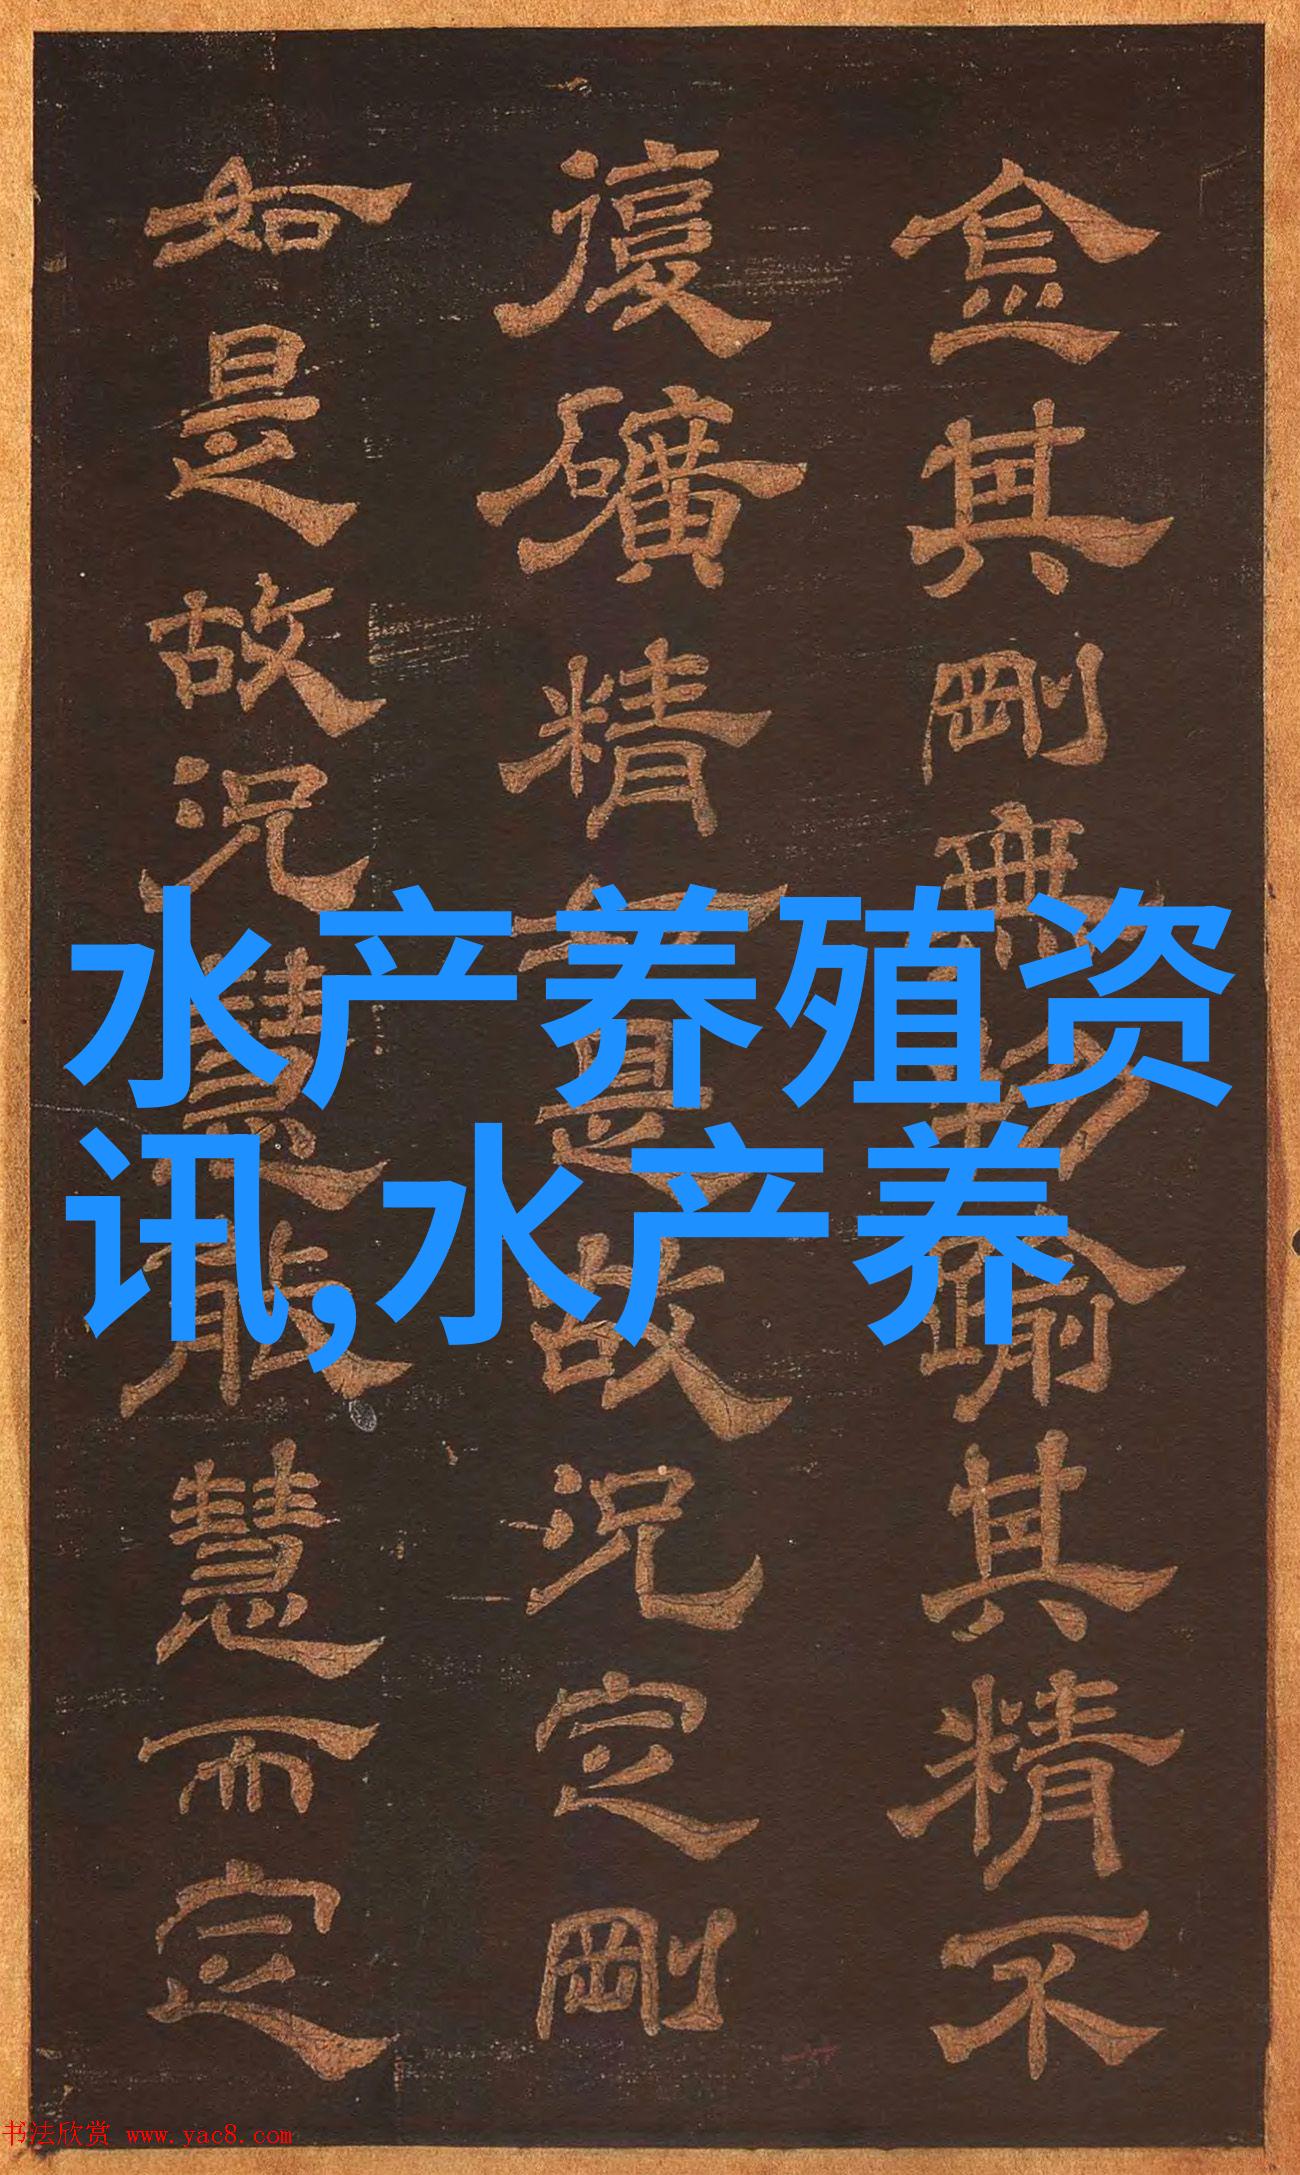 金其剛無踰其精不
復礦精真故況定剛
如是故況慧能慧而定
水产养殖资
讯,水产养
书法欣赏 www.yac8.com